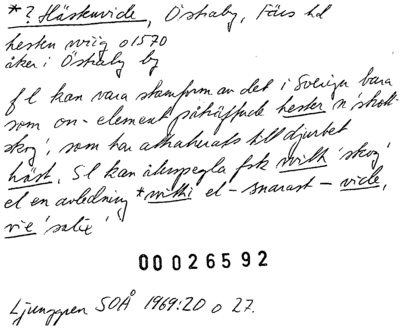 *? Häskenvide, Östraby, Färs hd
hesten wiig o1570
åker i Östraby by
fl kan vara stamform av det i Sverige bara
som on-element påträffade hester n 'skott-
skog', som har attraherats till djurbet
häst. Sl kan återspegla fsk with 'skog'
el en avledning *withi el - snarast - vide,
vie 'salix'
00026592
Ljunggren SOÅ 1969:20 o 27.